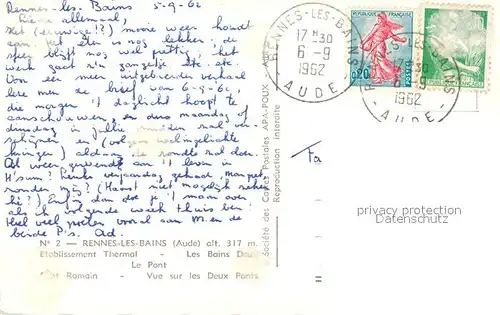 Rennes-les-Bains 5-9-62
Lieve allemaal,
Het (eeuwige!?) mooie weer houdt
aan, het eten is nog lekker, de
sfeer blijft nog wel prettig, het
werk gaat z'n gangetje etc. etc.
Voor een meer uitgebreider verhaal
leze men de brief van 6-9-62, die
morgen 't daglicht hoopt te
aanschouwen, en dus maandag of
dinsdag in jullie midden zal ver-
schijnen en (volgens welingelichte
kringen) aldaar de ronde zal doen.
Ad weer gewend aan 't leven in
H'sum? verjaardag gehad, mam, pet,
zonder mij? (Haast niet mogelijk
hè?) Enfin dan doe je 't maar over,
als ik volgende week thuis ben!
Heel veel groeten vooral aan M. en de
beide P's. Ad.
N° 2 — RENNES-LES-BAINS (Aude) alt. 317 m.
Etablissement Thermal - Les Bains
Le Pont
Romain - Vue sur les Deux Ponts
Société des Cartes Postales APA-POUX
Reproduction interdite
RENNES-LES-BAINS
17 H 30
6 -9
1962
AUDE
0,20
POSTES
RENNES-LES-BAINS
17 H 30
6 -9
1962
AUDE
privacy protection
Datenschutz